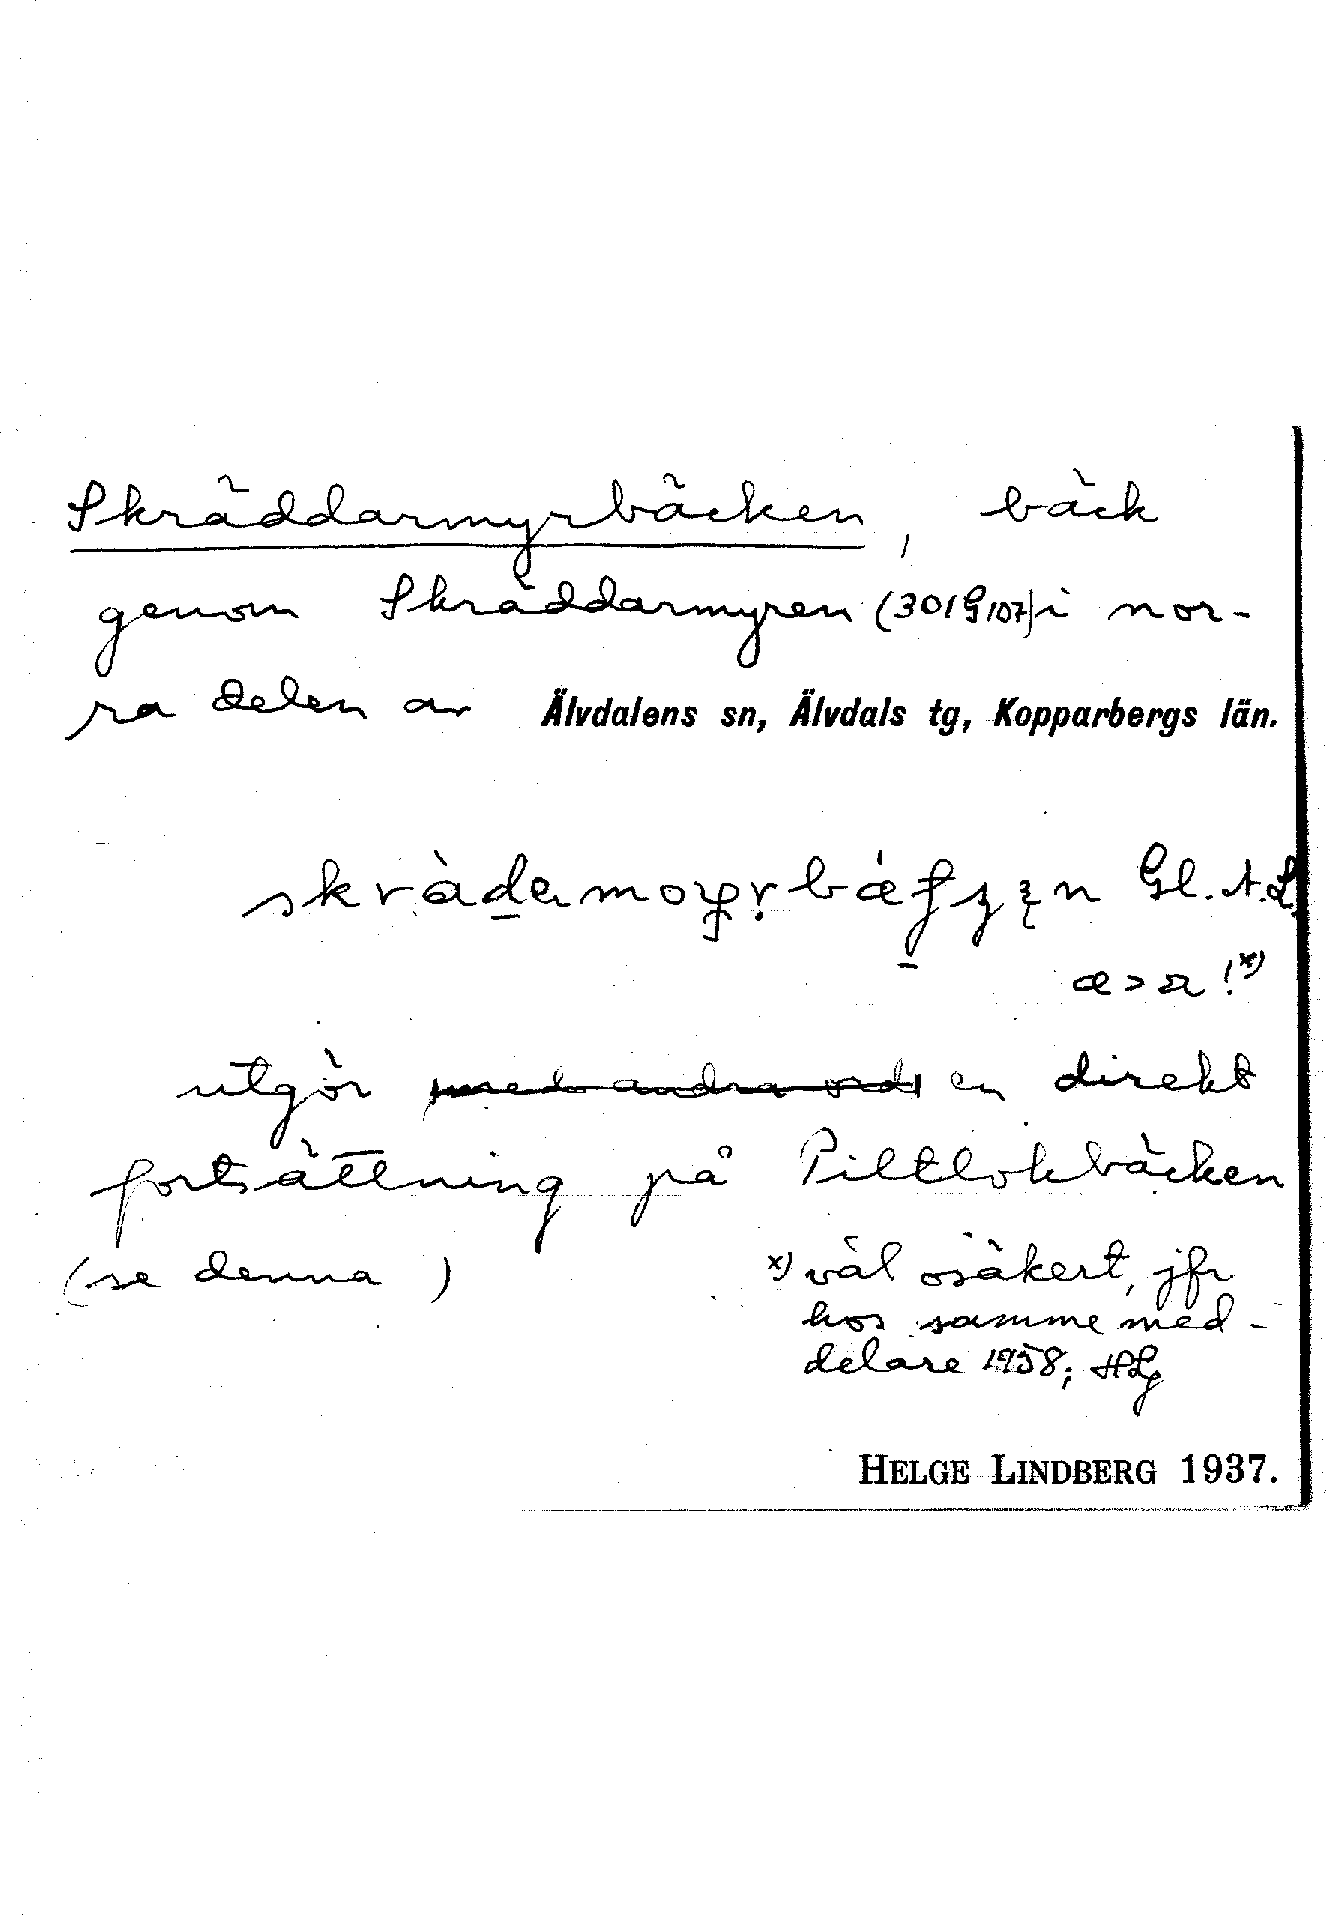 Skräddarmyrbäcken, bäck
genom Skräddarmyren (301 G 107) i nor-
ra delen av Älvdalens sn, Älvdals tg, Kopparbergs län.
Gl. A. L.
æ > a !x)
utgör med andra ord en direkt
fortsättning på Piltlokbäcken
(se denna)
x) väl osäkert, jfr
hos samme med-
delare 1958; HLg
HELGE LINDBERG 1937.